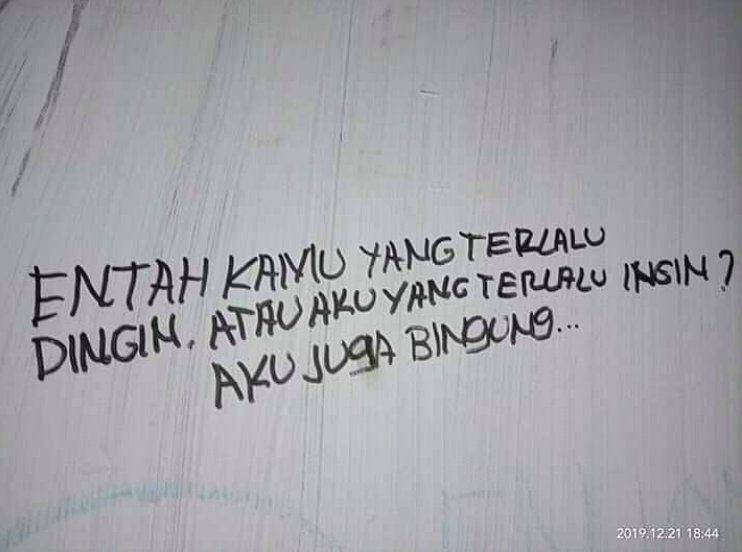 ENTAH KAMU YANG TERLALU
DINGIN. ATAU AKU YANG TERLALU INGIN?
AKU JUGA BINGUNG...
2019.12.21 18:44